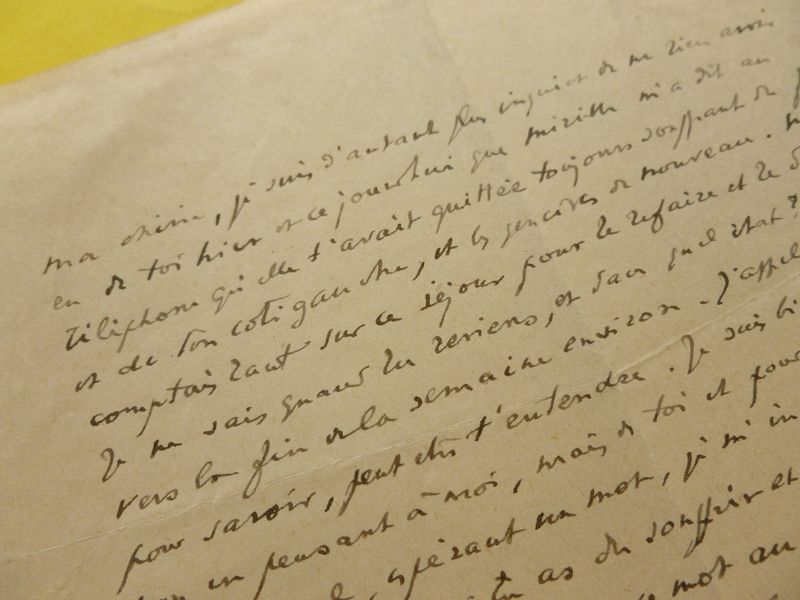 ma chérie, je suis d'autant plus inquiet de ne rien avoir
eu de toi hier et ce jourd'hui que mireille m'a dit au
téléphone qu'elle t'avait quittée toujours souffrant de
et de ton côté gauche, et les gencives de nouveau.
comptais tant sur ce séjour pour te refaire et te
Je ne sais quand tu reviens, et dans quel état ?
vers la fin de la semaine environ. J'appel
pour savoir, peut être t'entendre. Je suis bi
en pensant à moi, mais à toi et pour
espérant un mot, je m'in
tu as du souffrir et
mot au